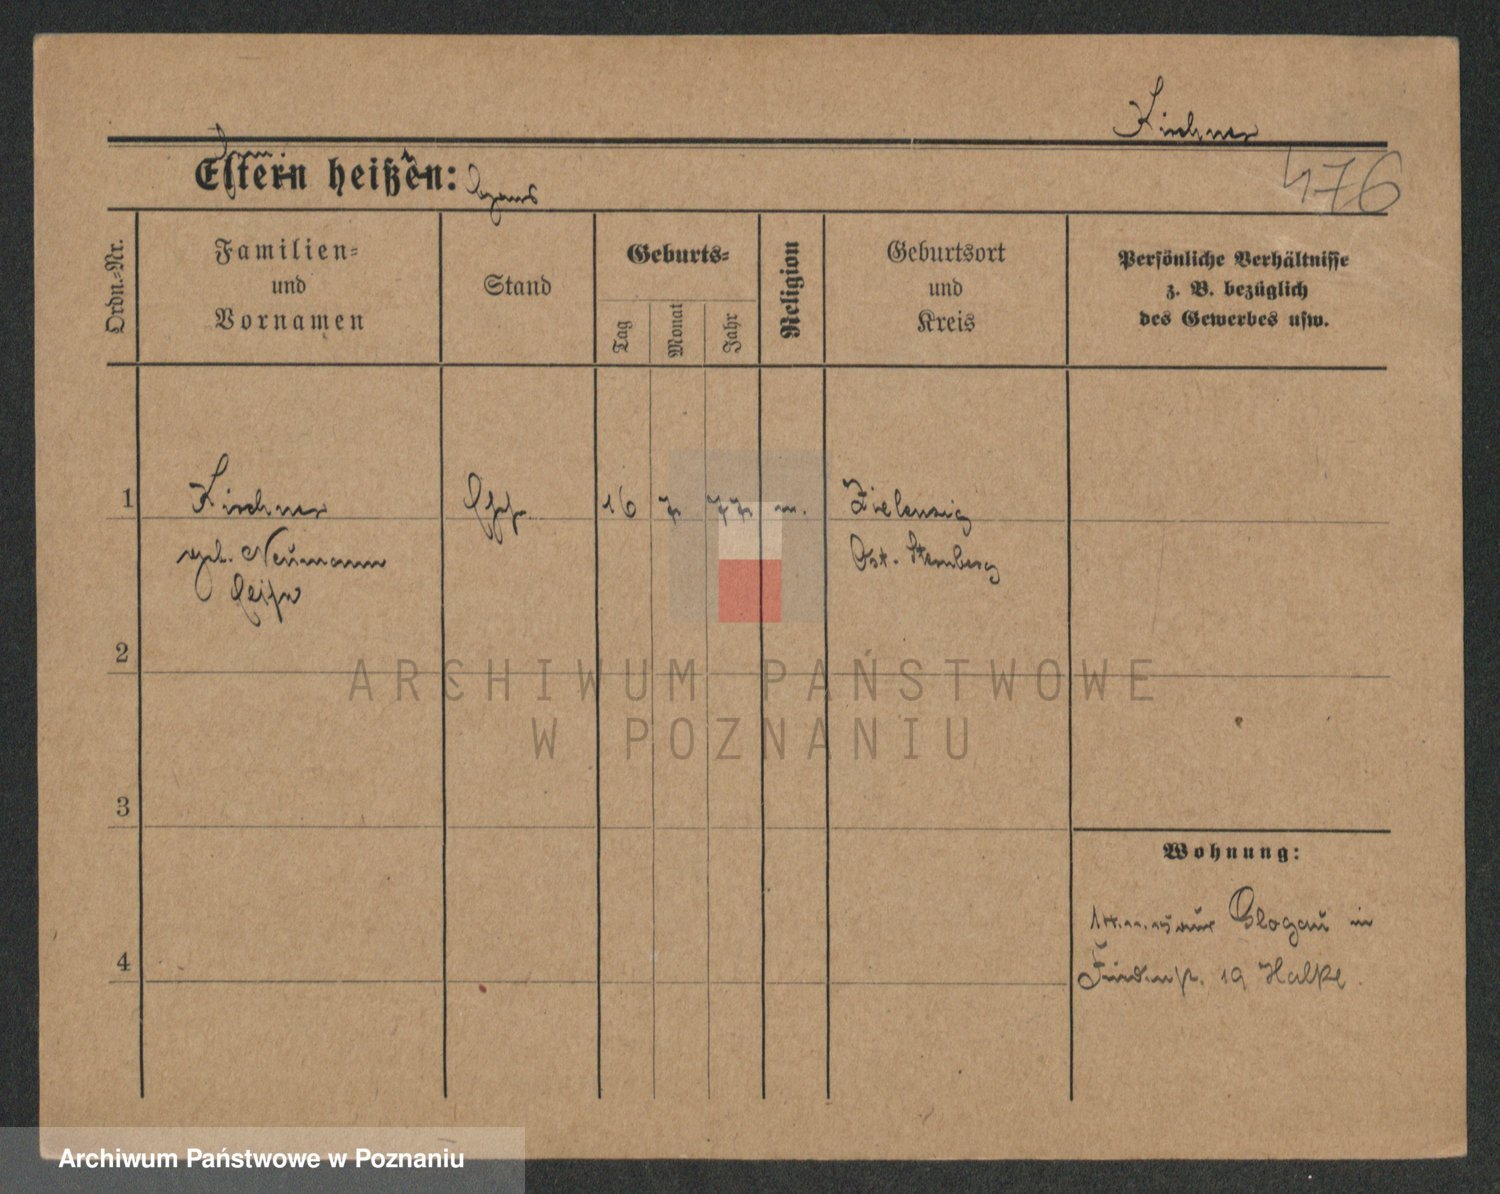 Kirchner
476
Eltern heißen:
Ordn.-Nr.
Familien-
und
Vornamen
Stand
Geburts-
Tag
Monat
Jahr
Religion
Geburtsort
und
Kreis
Persönliche Verhältnisse
z. B. bezüglich
des Gewerbes usw.
1
Kirchner
geb. Neumann
Ehefr.
16
7.
77
Zielenzig
Ost. Sternberg
2
ARCHIWUM PAŃSTWOWE
W POZNANIU
3
Wohnung:
Glogau in
4
19 Halke.
Archiwum Państwowe w Poznaniu